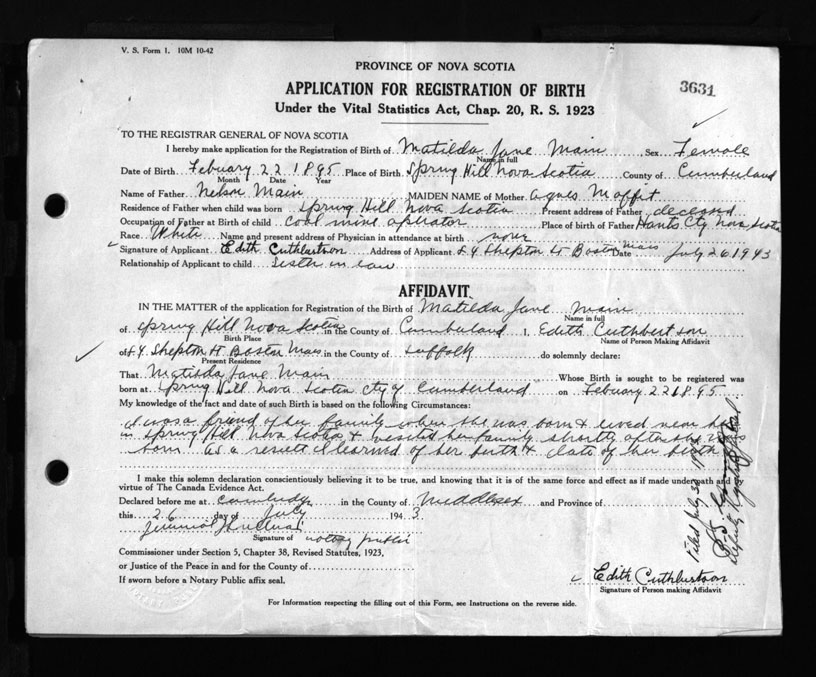 V. S. Form 1. 10M 10-42
PROVINCE OF NOVA SCOTIA
APPLICATION FOR REGISTRATION OF BIRTH
3631
Under the Vital Statistics Act, Chap. 20, R. S. 1923
TO THE REGISTRAR GENERAL OF NOVA SCOTIA
I hereby make application for the Registration of Birth of Matilda Jane Main, Sex Female
Name in full
Date of Birth Febuary 22 1895 Place of Birth Spring Hill Nova Scotia County of Cumberland
Month Date Year
Name of Father Nelson Main MAIDEN NAME of Mother Agnes Moffit
Residence of Father when child was born Spring Hill Nova Scotia Present address of Father deceased
Occupation of Father at Birth of child coal mine operator Place of birth of Father Hants Cty Nova Scotia
Race White Name and present address of Physician in attendance at birth none
Signature of Applicant Edith Cuthbertson Address of Applicant Shepton St Boston Mass Date July 26 1943
Relationship of Applicant to child sister in law
AFFIDAVIT
IN THE MATTER of the application for Registration of the Birth of Matilda Jane Main
Name in full
of Spring Hill Nova Scotia in the County of Cumberland I, Edith Cuthbertson
Birth Place Name of Person Making Affidavit
of Shepton St Boston Mass in the County of Suffolk do solemnly declare:
Present Residence
That Matilda Jane Main Whose Birth is sought to be registered was
born at Spring Hill Nova Scotia Cty of Cumberland on Febuary 22 1895
My knowledge of the fact and date of such Birth is Based on the following Circumstances:
I was a friend of her family when she was born & lived near her
in Spring Hill Nova Scotia & visited her family shortly after she was
born. As a result I learned of her birth & date of her birth
I make this solemn declaration conscientiously believing it to be true, and knowing that it is of the same force and effect as if made under oath and by
virtue of The Canada Evidence Act.
Declared before me at in the County of Middlesex and Province of
this 26 day of July 1943
Signature of notary public
Commissioner under Section 5, Chapter 38, Revised Statutes, 1923,
or Justice of the Peace in and for the County of
Edith Cuthbertson
If sworn before a Notary Public affix seal.
Signature of Person making Affidavit
For Information respecting the filling out of this Form, see Instructions on the reverse side.
Filed July 30
Deputy Registrar